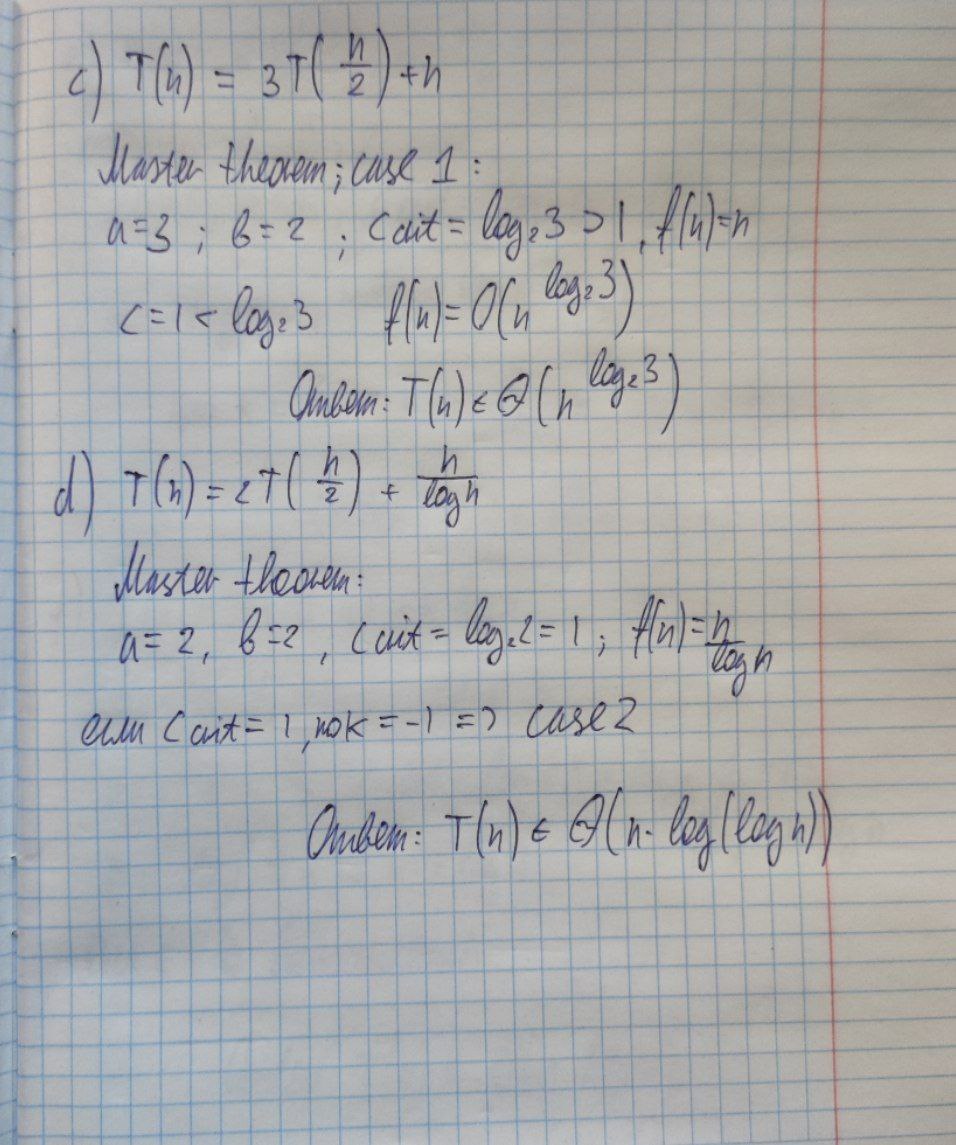 c) T(n) = 3T(n/2) + n
Master theorem; case 1:
a=3 ; b=2 ; Ccrit = log₂3 > 1, f(n)=n
c=1 < log₂3 f(n)=O(n^log₂3)
Ответ: T(n) ∈ Θ(n^log₂3)
d) T(n) = 2T(n/2) + n/log n
Master theorem:
a=2, b=2, Ccrit = log₂2=1 ; f(n)=n/log n
если Ccrit=1, но k=-1 => case 2
Ответ: T(n) ∈ Θ(n·log(log n))